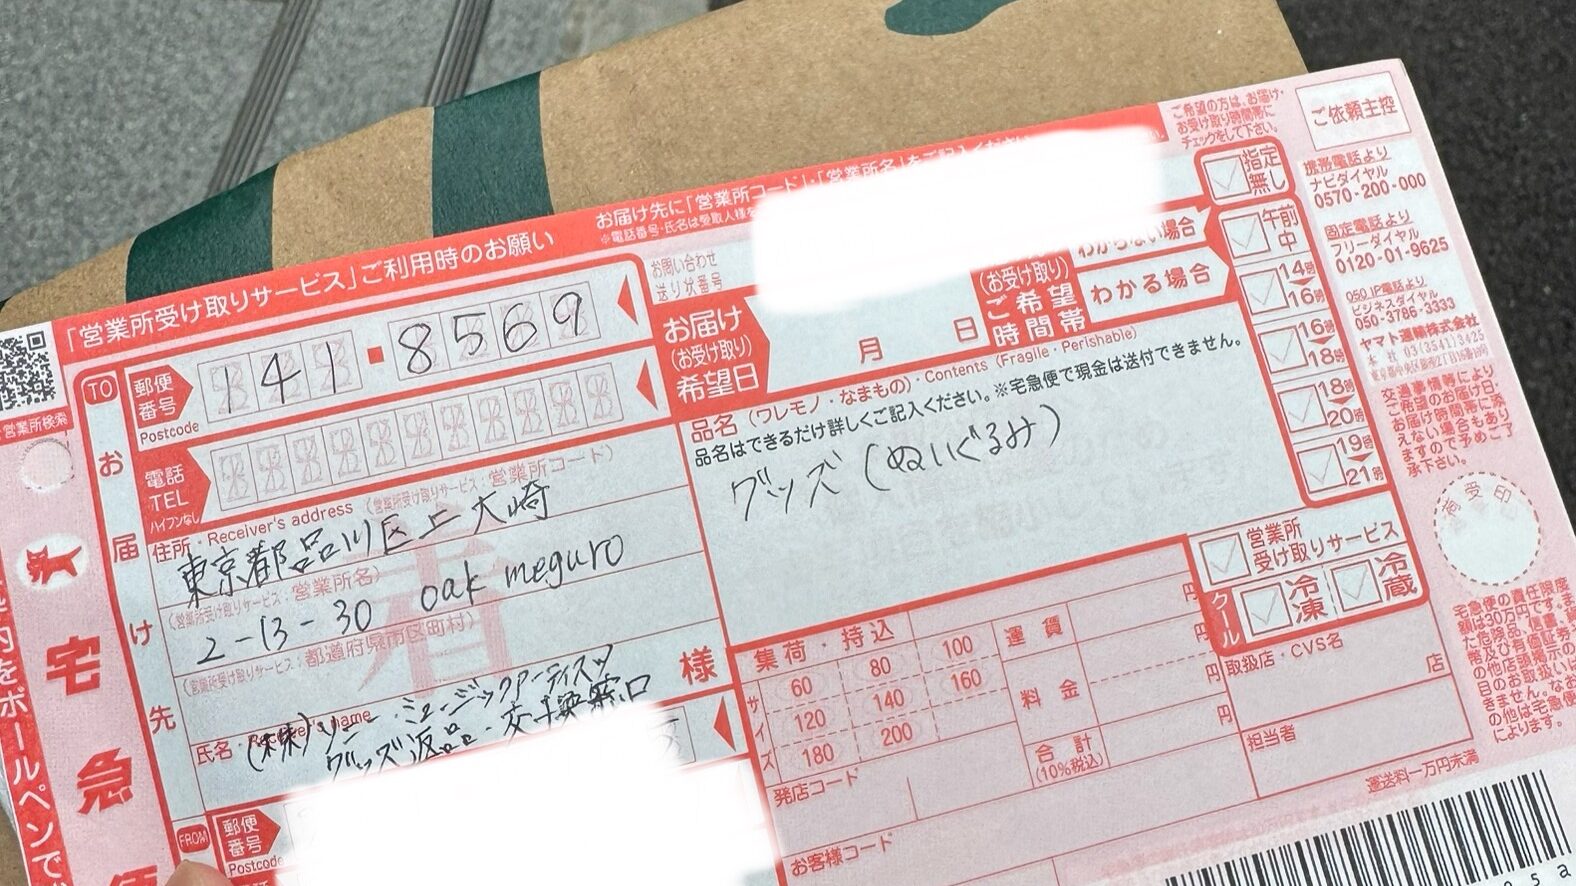 「営業所受け取りサービス」ご利用時のお願い
お届け先に「営業所コード」・「営業所名」をご記入くださ
※電話番号・氏名は受取人様を
ご希望の方は、お届け・
お受け取り時間帯に
チェックをして下さい。
ご依頼主控
営業所検索
TO
お届け先
郵便番号
Postcode
141-8569
電話
TEL
ハイフンなし
住所・Receiver's address (営業所受け取りサービス:営業所コード)
東京都品川区上大崎
(営業所受け取りサービス:営業所名)
2-13-30 oak meguro
(営業所受け取りサービス:都道府県市区町村)
氏名・Receiver's name
(株)ソニー・ミュージックアーティスツ
グッズ返品・交換窓口
様
着
FROM
郵便番号
Postcode
宅急便
内をボールペンで
お問い合わせ
送り状番号
お届け
(お受け取り)
希望日
月
日
(お受け取り)
ご希望
時間帯
わからない場合
わかる場合
指定無し
午前中
14時
16時
16時
18時
18時
20時
19時
21時
品名(ワレモノ・なまもの)・Contents (Fragile・Perishable)
品名はできるだけ詳しくご記入ください。※宅急便で現金は送付できません。
グッズ(ぬいぐるみ)
営業所
受け取りサービス
クール
冷凍
冷蔵
集荷・持込
サイズ
60
80
100
120
140
160
180
200
運賃
円
料金
円
円
合計
(10%税込)
円
取扱店・CVS名
店
担当者
発店コード
お客様コード
運送料一万円未満
携帯電話より
ナビダイヤル
0570-200-000
固定電話より
フリーダイヤル
0120-01-9625
050 IP電話より
ビジネスダイヤル
050-3786-3333
ヤマト運輸株式会社
本社 03(3541)3425
交通事情等により
ご希望のお届け日・
お届け時間帯に添
えない場合もあり
ますので予めご了
承下さい。
荷受印
宅急便の責任限度
額は30万円です。ま